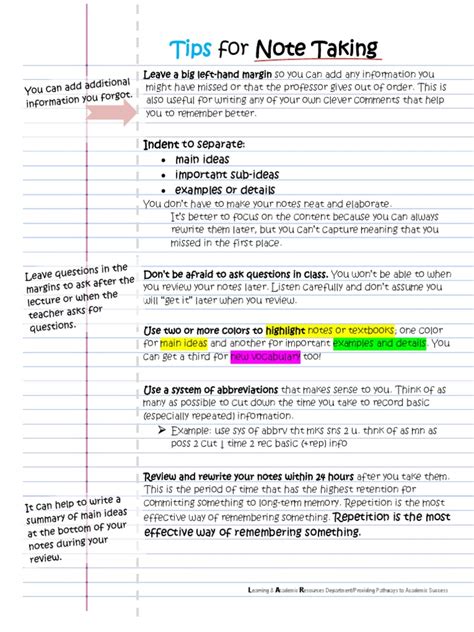 Tips for Note Taking
Leave a big left-hand margin so you can add any information you
might have missed or that the professor gives out of order. This is
also useful for writing any of your own clever comments that help
you to remember better.
You can add additional
information you forgot.
Indent to separate:
• main ideas
• important sub-ideas
• examples or details
You don't have to make your notes neat and elaborate.
It's better to focus on the content because you can always
rewrite them later, but you can't capture meaning that you
missed in the first place.
Leave questions in the
margins to ask after the
lecture or when the
teacher asks for
questions.
Don't be afraid to ask questions in class. You won't be able to when
you review your notes later. Listen carefully and don't assume you
will "get it" later when you review.
Use two or more colors to highlight notes or textbooks; one color
for main ideas and another for important examples and details. You
can get a third for new vocabulary too!
Use a system of abbreviations that makes sense to you. Think of as
many as possible to cut down the time you take to record basic
(especially repeated) information.
➢ Example: use sys of abbrv tht mks sns 2 u. thnk of as mn as
poss 2 cut ↓ time 2 rec basic (+rep) info
Review and rewrite your notes within 24 hours after you take them.
This is the period of time that has the highest retention for
committing something to long-term memory. Repetition is the most
effective way of remembering something. Repetition is the most
effective way of remembering something.
It can help to write a
summary of main ideas
at the bottom of your
notes during your
review.
Learning & Academic Resources Department/Providing Pathways to Academic Success